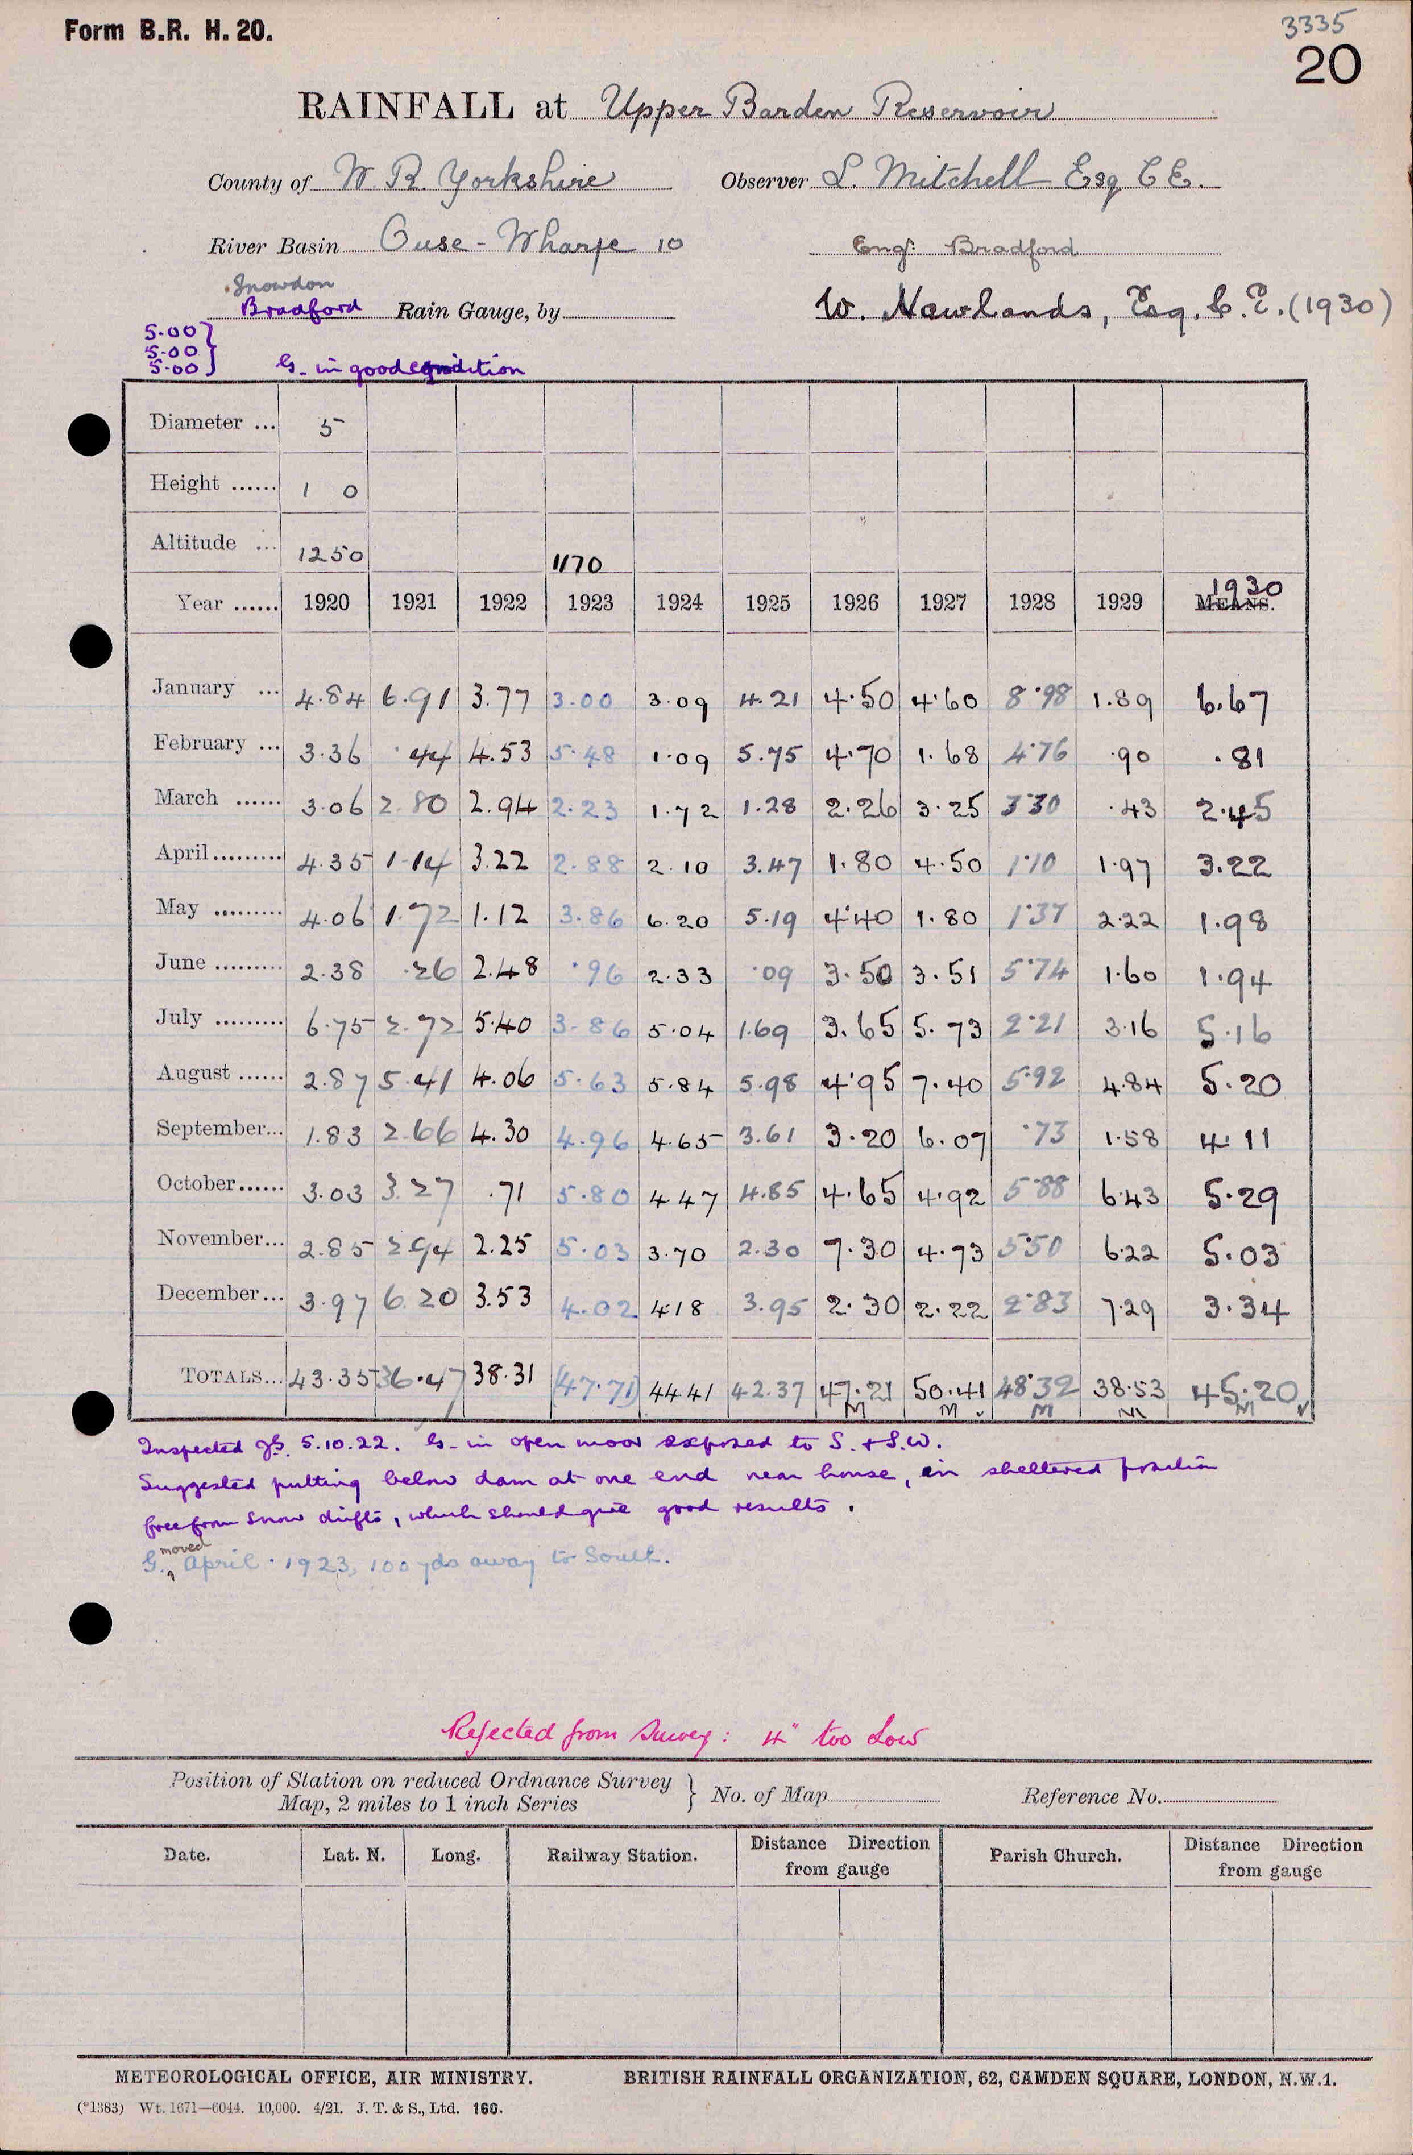 Form B.R. H. 20.
3335
20
RAINFALL at Upper Barden Reservoir
County of W. R. Yorkshire Observer L. Mitchell Esq C E.
River Basin Ouse - Wharfe 10 Engr. Bradford
Snowdon
Bradford Rain Gauge, by W. Newlands, Esq. C. E. (1930)
5.00
5.00
5.00 } G. in good condition
Diameter ... 5
Height ...... 1 0
Altitude ... 1250 1170
Year ...... 1920 1921 1922 1923 1924 1925 1926 1927 1928 1929 MEANS. 1930
January ... 4.84 6.91 3.77 3.00 3.09 4.21 4.50 4.60 8.98 1.89 6.67
February ... 3.36 .44 4.53 5.48 1.09 5.75 4.70 1.68 4.76 .90 .81
March ...... 3.06 2.80 2.94 2.23 1.72 1.28 2.26 3.25 3.30 .43 2.45
April......... 4.35 1.14 3.22 2.88 2.10 3.47 1.80 4.50 1.10 1.97 3.22
May ......... 4.06 1.72 1.12 3.86 6.20 5.19 4.40 1.80 1.37 2.22 1.98
June ......... 2.38 .26 2.48 .96 2.33 .09 3.50 3.51 5.74 1.60 1.94
July ......... 6.75 2.72 5.40 3.86 5.04 1.69 3.65 5.73 2.21 3.16 5.16
August ...... 2.87 5.41 4.06 5.63 5.84 5.98 4.95 7.40 5.92 4.84 5.20
September... 1.83 2.66 4.30 4.96 4.65 3.61 3.20 6.07 .73 1.58 4.11
October...... 3.03 3.27 .71 5.80 4.47 4.85 4.65 4.92 5.88 6.43 5.29
November... 2.85 2.94 2.25 5.03 3.70 2.30 7.30 4.73 5.50 6.22 5.03
December... 3.97 6.20 3.53 4.02 4.18 3.95 2.30 2.22 2.83 7.29 3.34
TOTALS... 43.35 36.47 38.31 (47.71) 44.41 42.37 47.21 50.41 48.32 38.53 45.20
M M M M M
Inspected 5.10.22. G. in open moor exposed to S. & S.W.
Suggested putting below dam at one end near house, in sheltered position
free from snow drifts, which should give good results.
G. moved April. 1923, 100 yds away to South.
Rejected from Survey: 4" too low
Position of Station on reduced Ordnance Survey
Map, 2 miles to 1 inch Series } No. of Map Reference No.
Date. Lat. N. Long. Railway Station. Distance Direction from gauge Parish Church. Distance Direction from gauge
METEOROLOGICAL OFFICE, AIR MINISTRY. BRITISH RAINFALL ORGANIZATION, 62, CAMDEN SQUARE, LONDON, N.W.1.
(*1383) Wt. 1671—6044. 10,000. 4/21. J. T. & S., Ltd. 160.